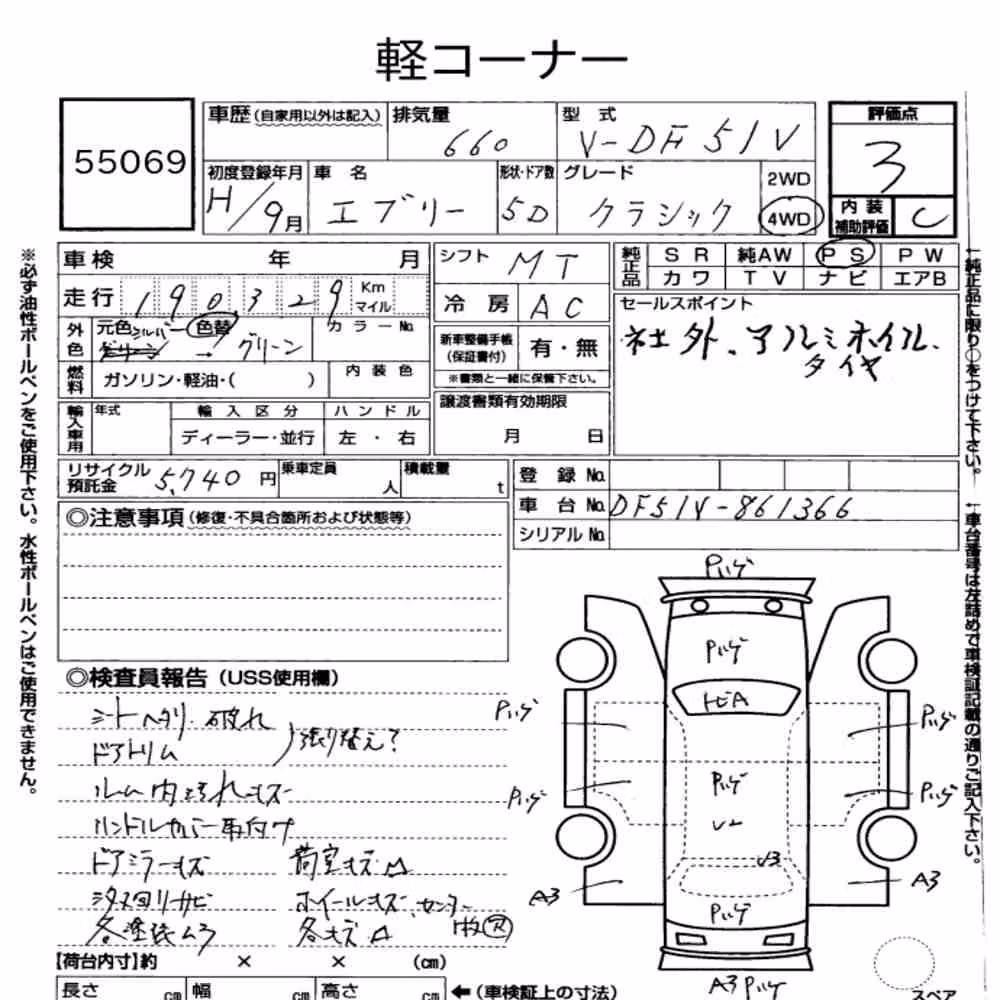 軽コーナー
55069
車歴 (自家用以外は記入) 排気量 660 型式 V-DF51V 評価点 3
初度登録年月 H/9月 車名 エブリー 形状・ドア数 5D グレード クラシック 2WD 4WD
内装補助評価 C
車検 年 月 シフト MT 純正品 SR 純AW PS PW
カワ TV ナビ エアB
走行 190,329 Km マイル 冷房 AC セールスポイント
外色 元色 シルバー グリーン 色替 → グリーン カラーNo. 新車整備手帳(保証書付) 有・無 社外、アルミホイル.
タイヤ
燃料 ガソリン・軽油・( ) 内装色 ※書類と一緒に保管下さい。
輸入車用 年式 輸入区分 ハンドル 譲渡書類有効期限
ディーラー・並行 左・右 月 日
リサイクル預託金 5,740円 乗車定員 人 積載量 t 登録No.
車台No. DF51V-861366
シリアルNo.
◎注意事項 (修復・不具合箇所および状態等)
◎検査員報告 (USS使用欄)
シートヘタリ. 破れ
ドアトリム )張り替え?
ルーム内汚れキズ
ハンドルカバー取付け
ドアミラーキズ 荷室キズ凸
下回りサビ ホイールキズ、センター
各塗装ムラ 各キズ凸
【荷台内寸】約 × × (cm)
長さ cm 幅 cm 高さ cm ←(車検証上の寸法)
Pハゲ
Pハゲ
トビA
Pハゲ Pハゲ
Pハゲ Pハゲ Pハゲ
U2
U3
A3 A3
Pハゲ
A3 Pハゲ
スペア
※必ず油性ボールペンをご使用下さい。水性ボールペンはご使用できません。
↑純正品に限り○をつけて下さい。
↑車台番号は左詰めで車検証記載の通りご記入下さい。